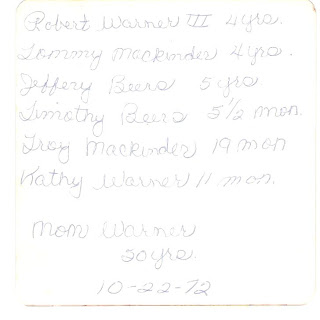 Robert Warner III 4yrs.
Tommy Mackinder 4yrs.
Jeffery Beers 5yrs
Timothy Beers 5 1/2 mon.
Troy Mackinder 19 mon
Kathy Warner 11 mon.
Mom Warner
50yrs.
10-22-72